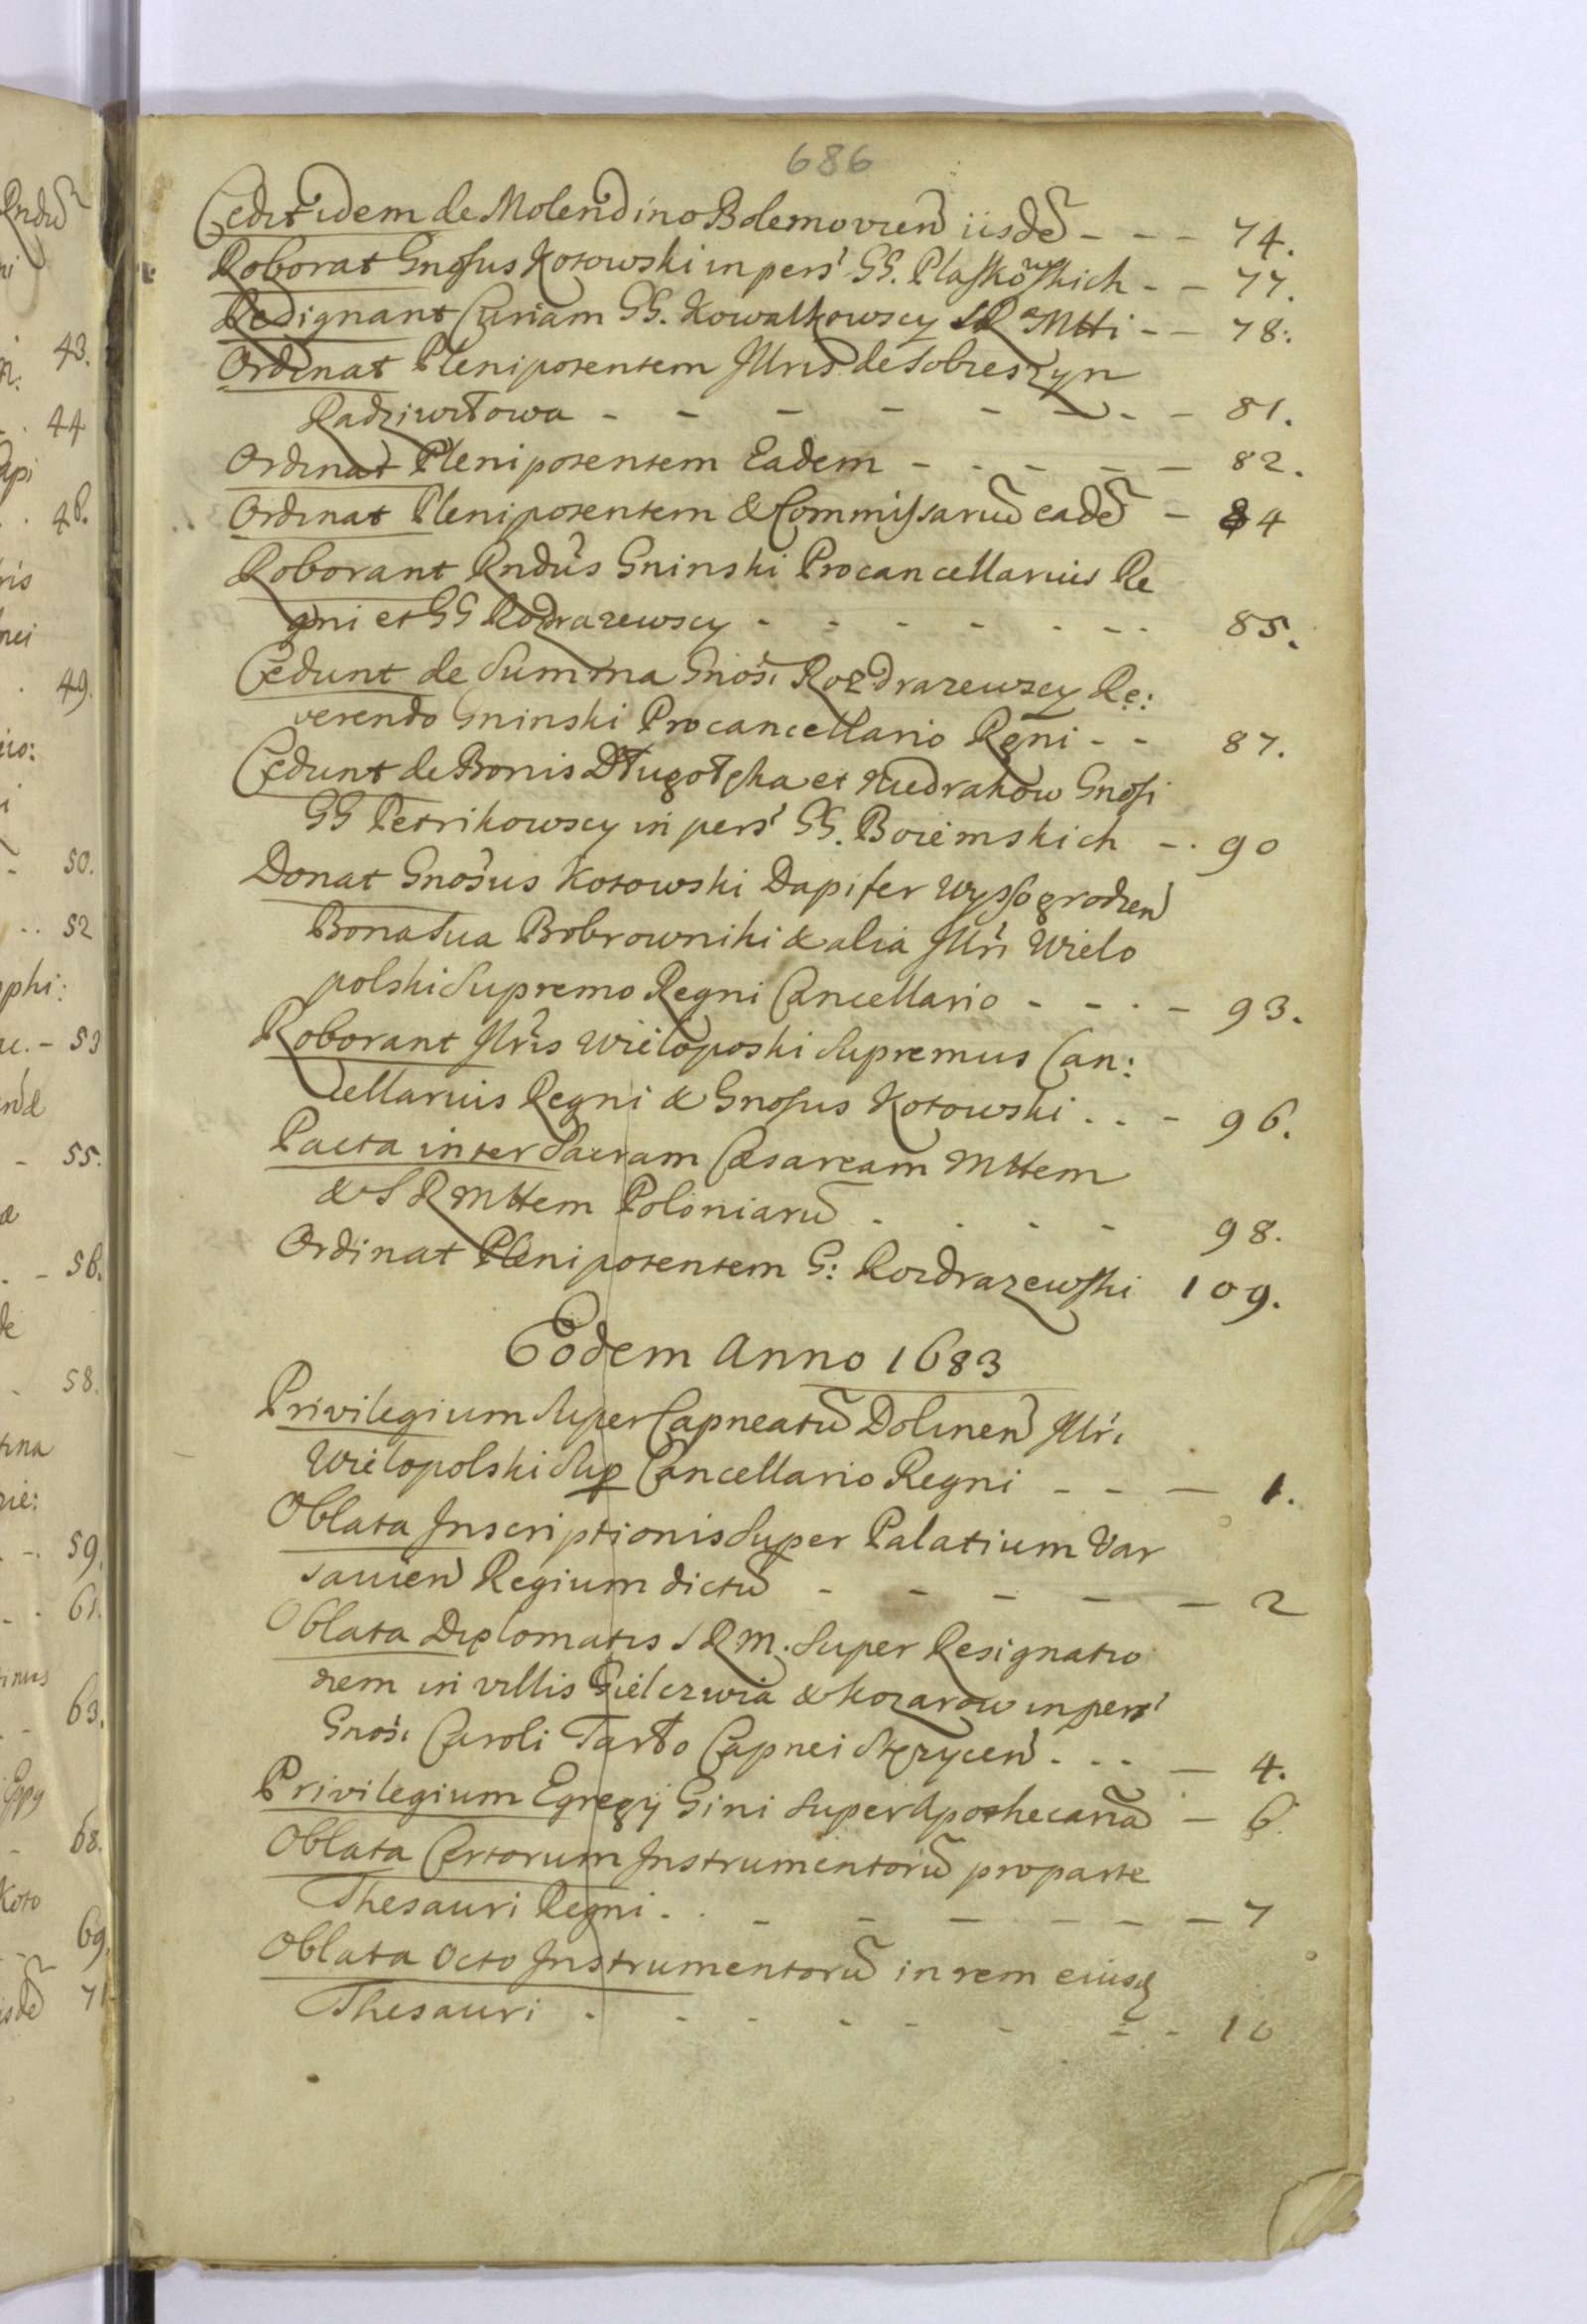 686
Cedit idem de Molendino Bolemovien iisde - - - 74.
Roborat Gnosus Kotowski in pers GG. Plaskowskich - - 77.
Resignant Curiam GG. Kowalkowscy S R Mtti - - 78.
Ordinat Plenipotentem Illris de Sobieszyn
Radziwiłowa - - - - - - - - 81.
Ordinat Plenipotentem Eadem - - - - - 82.
Ordinat Plenipotentem & Commissariu eade - 84
Roborant Rndus Gninski Procancellarius Re
gni et GG Rozdrazewscy - - - - - - - 85.
Cedunt de Summa Gnosi Rozdrazewscy Re:
verendo Gninski Procancellario Regni - - 87.
Cedunt de Bonis Długołęka et Niedrakow Gnosi
GG Petrikowscy in pers GG. Boiemskich - . 90
Donat Gnosus Kotowski Dapifer Wyssogrodien
Bona Sua Bobrowniki & alia Illri Wielo
polski Supremo Regni Cancellario - - - - 93.
Roborant Illris Wielopolski Supremus Can:
cellarius Regni & Gnosus Kotowski . . - 96.
Pacta inter Sacram Cæsaream Mttem
& S R Mttem Poloniaru - . - - 98.
Ordinat Plenipotentem G: Rozdrazewski 109.
Eodem Anno 1683
Privilegium Super Capneatu Dolinen Illri
Wielopolski Sup Cancellario Regni - - - 1.
Oblata Inscriptionis Super Palatium Var
savien Regium dictu - - - - - 2
Oblata Diplomatis S R M. Super Resignatio
nem in villis Gielczwia & Kozarow in pers
Gnosi Caroli Tarło Capnei Stęzycen - - - - 4.
Privilegium Egregij Gini Super Apothecaria - 6.
Oblata Certorum Instrumentoru pro parte
Thesauri Regni . . - - - - - - 7
Oblata Octo Instrumentoru in rem eiusd
Thesauri - - - - - - - - 10